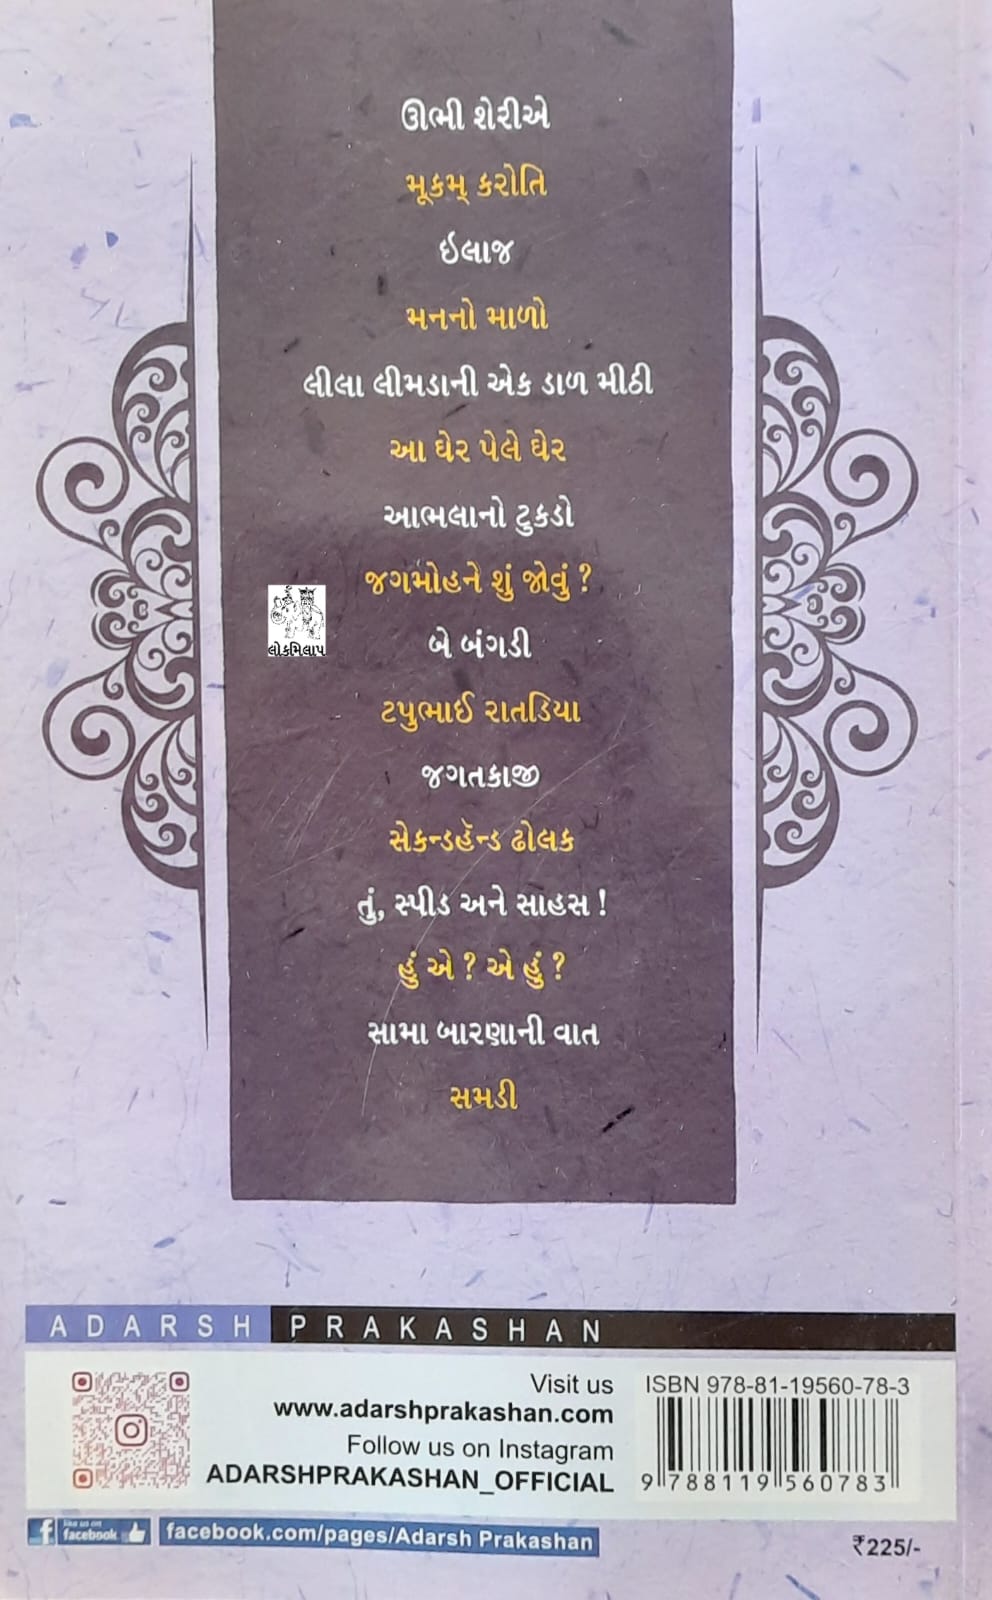 ઊભી શેરીએ
મૂકમ્ કરોતિ
ઇલાજ
મનનો માળો
લીલા લીમડાની એક ડાળ મીઠી
આ ઘેર પેલે ઘેર
આભલાનો ટુકડો
જગમોહને શું જોવું ?
લોકમિલાપ
બે બંગડી
ટપુભાઈ રાતડિયા
જગતકાજી
સેકન્ડહૅન્ડ ઢોલક
તું, સ્પીડ અને સાહસ !
હું એ ? એ હું ?
સામા બારણાની વાત
સમડી
ADARSH PRAKASHAN
Visit us
www.adarshprakashan.com
Follow us on Instagram
ADARSHPRAKASHAN_OFFICIAL
ISBN 978-81-19560-78-3
9 788119 560783
like us on
facebook
facebook.com/pages/Adarsh Prakashan
₹225/-